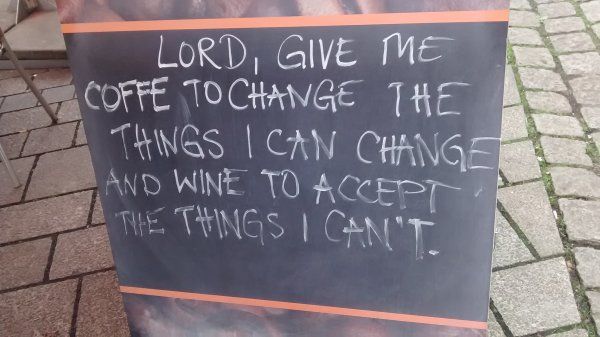 LORD, GIVE ME
COFFE TO CHANGE THE
THINGS I CAN CHANGE
AND WINE TO ACCEPT
THE THINGS I CAN'T.